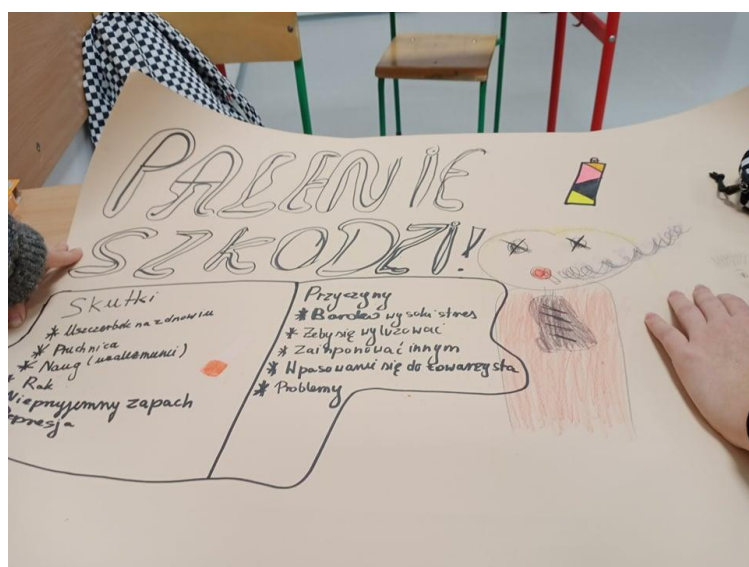 PALENIE
SZKODZI!
Skutki
* Uszczerbek na zdrowiu
* Puchnica
* Naug (uzależnienie)
* Rak
Nieprzyjemny zapach
epresja
Przyczyny
* Bardzo wysoki stres
* Żeby się wyluzować
* Zaimponować innym
* Wpasowanie się do towarzysta
* Problemy